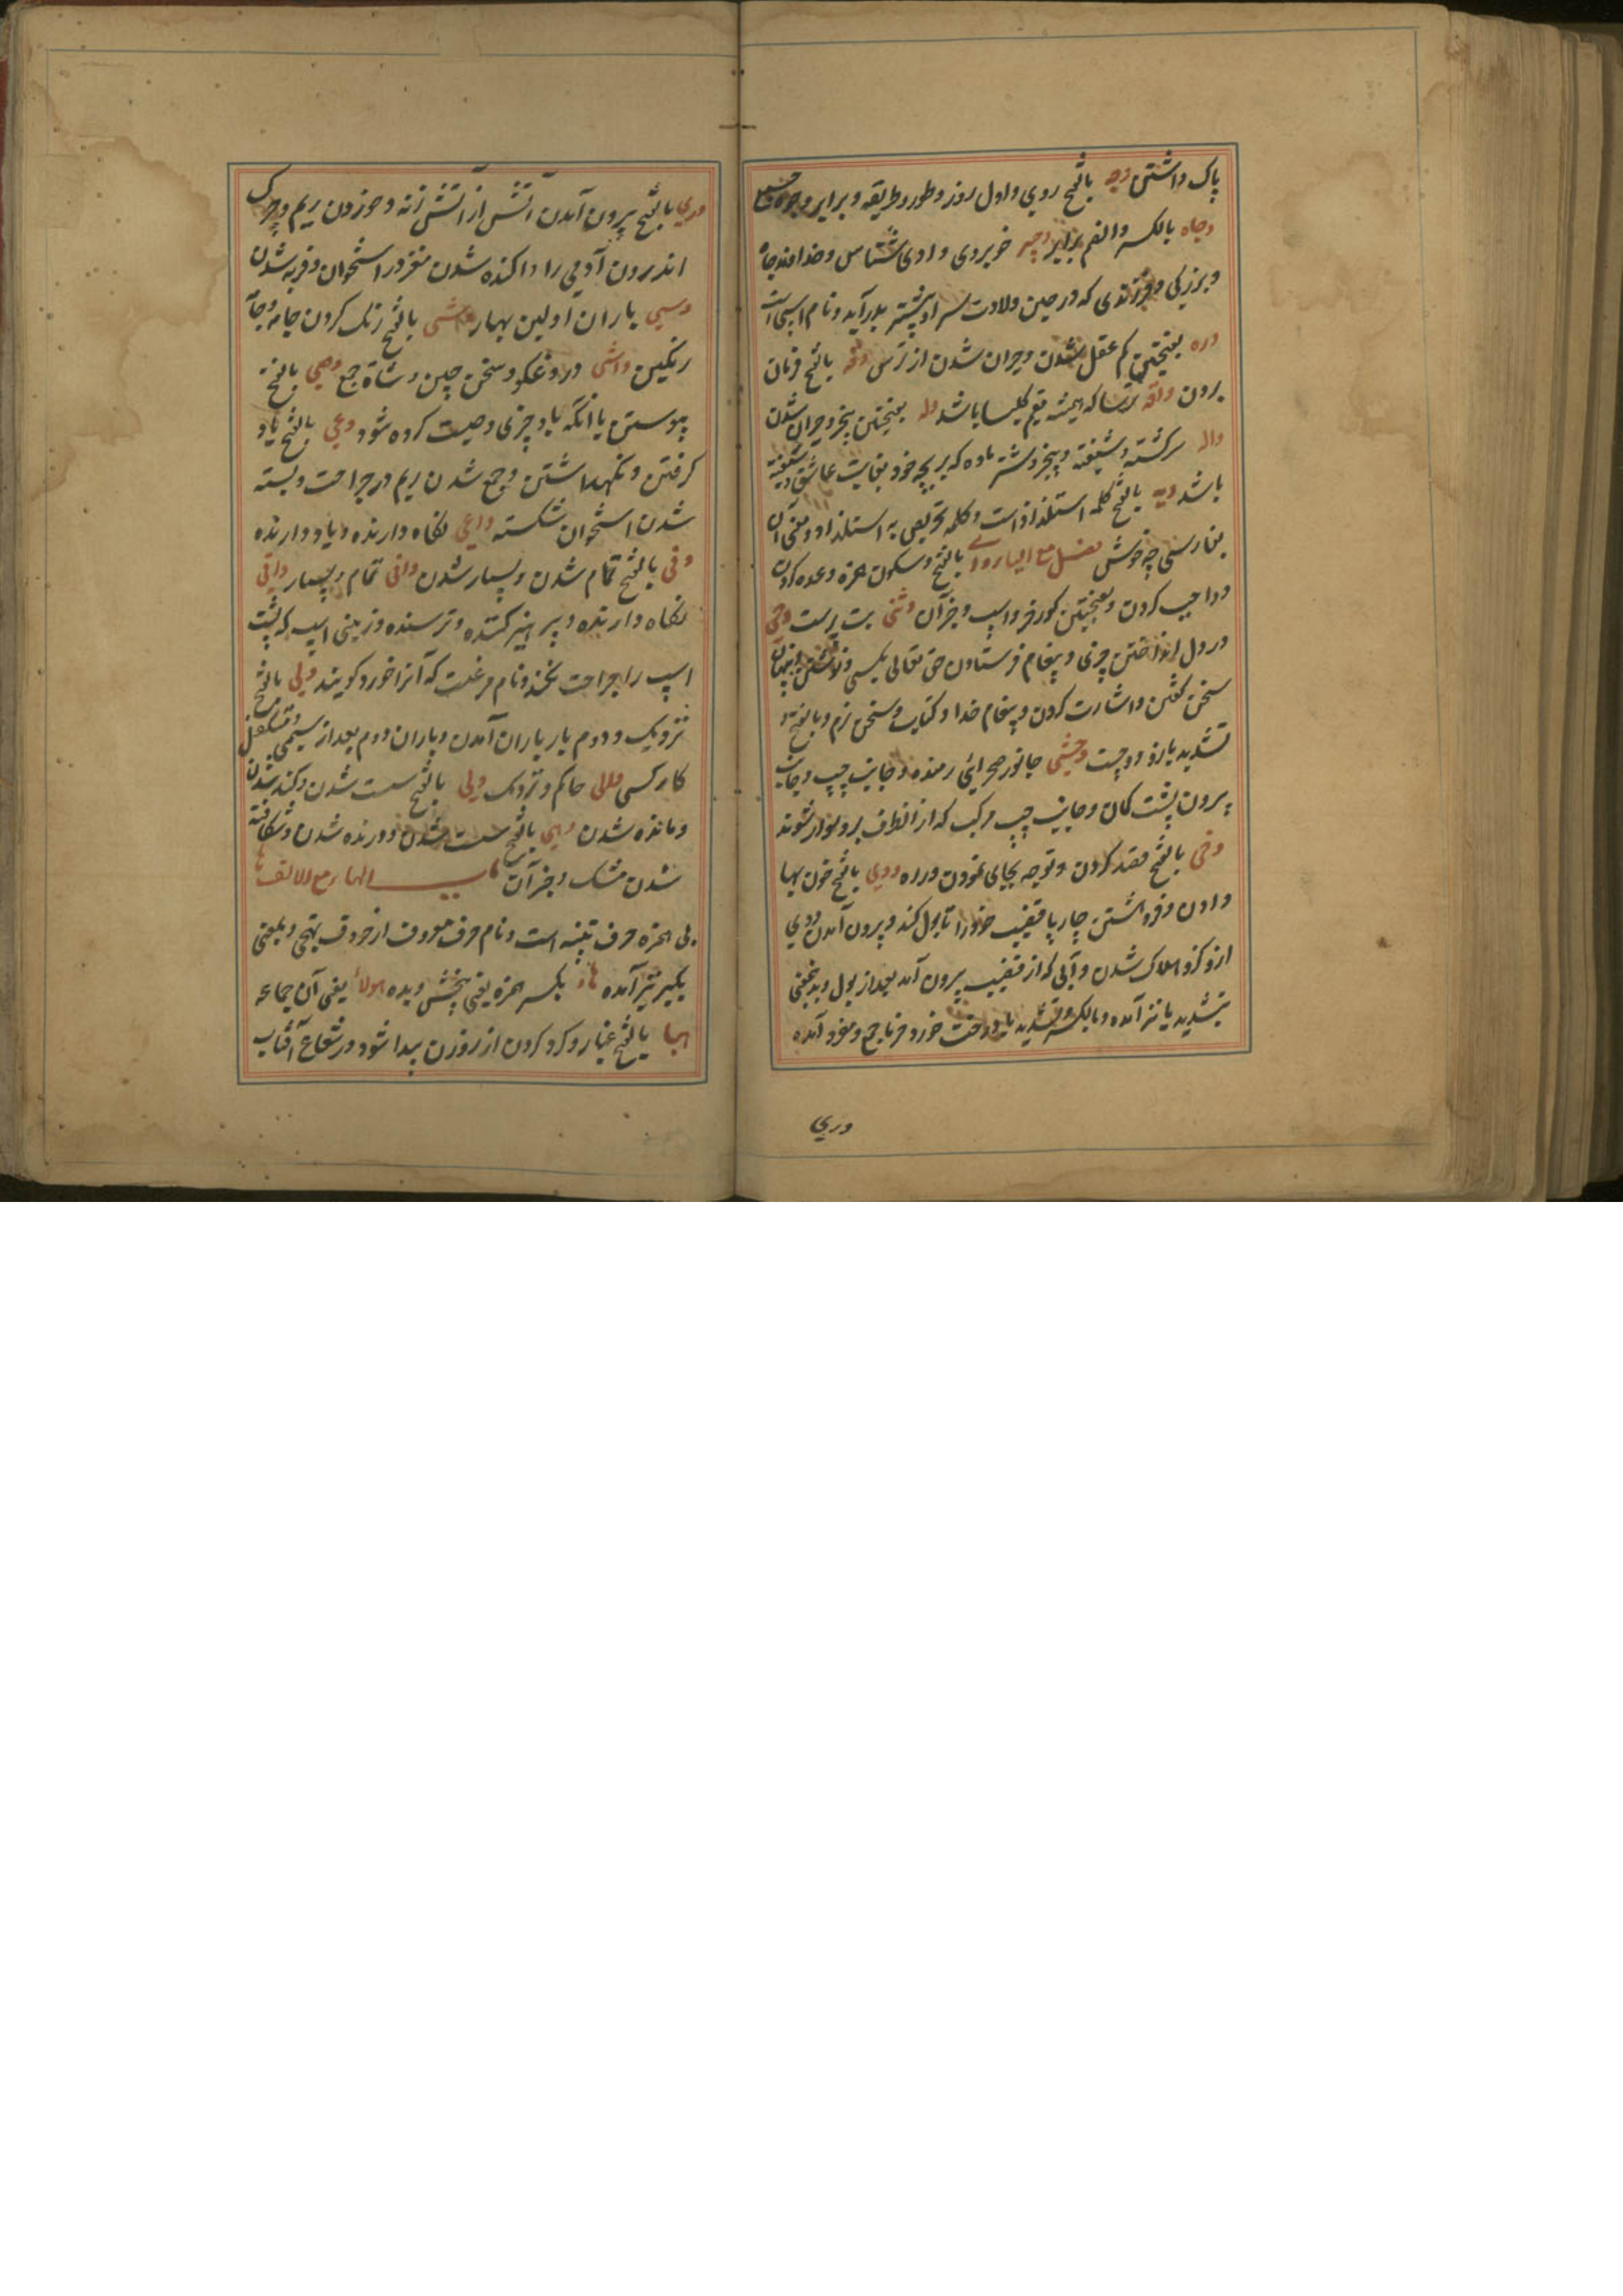 پاک داشتن وجه بالفتح روی و اول روز و طور و طریقه و برابر وجوه جمع
وجاه بالکسر والضم برابر وجیه خوبروی و اوی شناس و خداوند جاه
و بزرگی و فرزندی که در حین ولادت سر او پیشتر بدرآید و نام اسپی است
وره بفتحتین کم عقل شدن و حیران شدن از ترس وقه بالفتح فرمان
بردن واقه ترسا که همیشه مقیم کلیسا باشد وله بفتحتین بیخبر و حیران شدن
واله سرگشته و شیفته و بیخبر و شتر ماده که بر بچه خود بغایت عاشق و شیفته
باشد ویه بالفتح کلمه استلذاذ است و کلمه تحریص به استلذاذ و معنی آن
بفارسی چه خوش فصل مع الیاء وای بالفتح و سکون همزه وعده کردن
و واجب کردن و بفتحتین گورخر و اسپ و جز آن وثنی بت پرست وحی
در دل انداختن چیزی و پیغام فرستادن حق تعالی بکسی و نوشتن و پنهان
سخن گفتن و اشارت کردن و پیغام خدا و کتاب و سخن نرم و بالفتح و
تشدید یا زود و چست وحشی جانور صحرائی رمنده و جانب چپ و جانب
بیرون پشت کمان و جانب چپ مرکب که از انطرف برو سوار شوند
وخی بالفتح قصد کردن و توجه بجای نمودن و راه ودی بالفتح خون بها
دادن و فروهشتن چارپا قضیب خود را تا بول کند و بیرون آمدن ودی
از و کز و هلاک شدن و آبی که از قضیب بیرون آید بعد از بول و بدینمعنی
بتشدید یا نیز آمده و بالکسر و تشدید یا درخت خورد خرما جمع و مفرد آمده
وری
وری بالفتح بیرون آمدن آتش از آتش زنه و خوردن ریم و چرک
اندرون آدمی را و اکنده شدن مغز در استخوان و فربه شدن
وسمی باران اولین بهار وشی بالفتح رنگ کردن جامه و جامه
رنگین واشی دروغگو و سخن چین وشاة جمع وصی بالفتح
پیوستن یا انکه باو چیزی وصیت کرده شود وعی بالفتح یاد
گرفتن و نگهداشتن و جمع شدن ریم در جراحت و بسته
شدن استخوان شکسته واعی نگاه دارنده و یاد دارنده
وفی بالفتح تمام شدن و بسیار شدن وافی تمام و بسیار واقی
نگاه دارنده و پرهیز کننده و ترسنده و زینی اسپ که پشت
اسپ را جراحت نکند و نام مرغیست که آنرا خورد گویند ولی بالفتح
نزدیک و دوم بار باران آمدن و باران دوم بعد از وسمی و متکفل
کار کسی والی حاکم و نزدیک ونی بالفتح سست شدن و کند شدن
و مانده شدن وهی بالفتح سست شدن و دریده شدن و شکافته
شدن مشک و جز آن باب الهاء مع الالف ها
بی همزه حرف تنبیه است و نام حرف معروف از حروف تهجی و بمعنی
بگیر نیز آمده هاء بکسر همزه یعنی ببخش و بده هولاء یعنی آن جماعه
هبا بالفتح غبار و گرد که درون از روزن پیدا شود در شعاع آفتاب